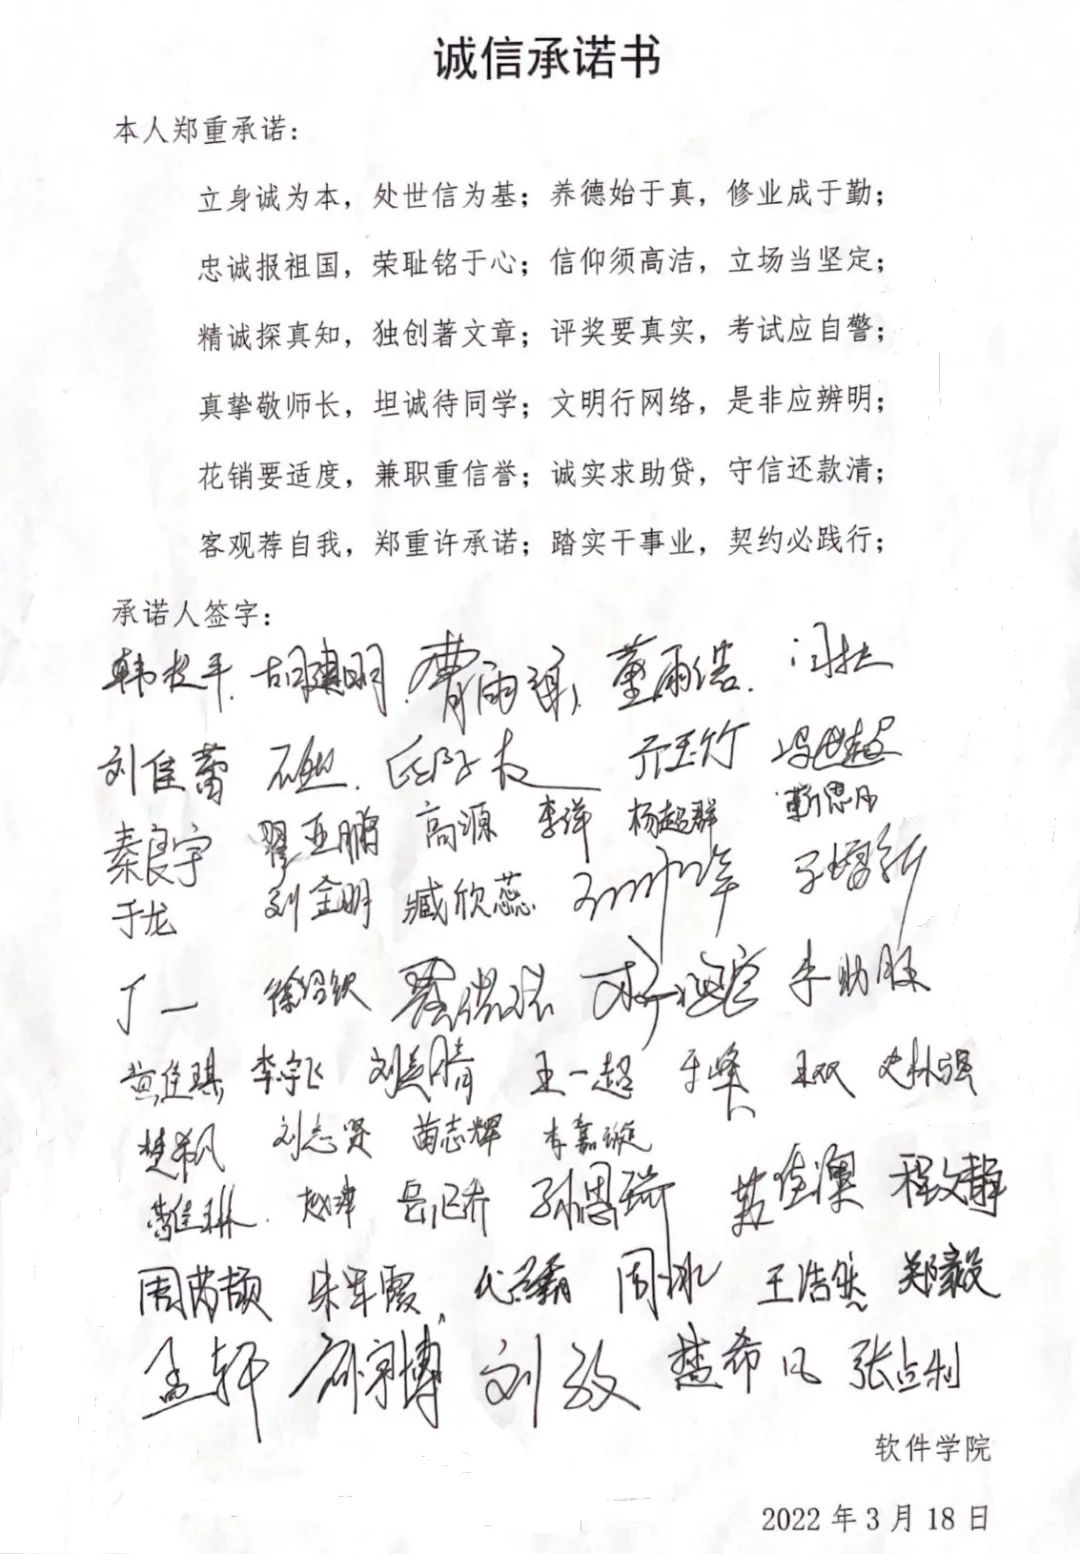 诚信承诺书
本人郑重承诺：
立身诚为本，处世信为基；养德始于真，修业成于勤；
忠诚报祖国，荣耻铭于心；信仰须高洁，立场当坚定；
精诚探真知，独创著文章；评奖要真实，考试应自警；
真挚敬师长，坦诚待同学；文明行网络，是非应辨明；
花销要适度，兼职重信誉；诚实求助贷，守信还款清；
客观荐自我，郑重许承诺；踏实干事业，契约必践行；
承诺人签字：
胡建明 董雨浩
刘佳蕾 亓玉竹 冯世超
秦良宇 翟亚鹏 高源 李洋 杨超群 靳思丹
于龙 刘金明 臧欣蕊
丁一 徐绍钦
黄佳琪 李宇飞 王一超 于峰 王双 史林强
楚希风 刘志贤 苗志辉 李嘉璇
孙思瑞 程文静
周芮颉 朱军霞 周冰 王浩然 郑毅
孟轩 刘孜 楚希风
软件学院
2022 年 3 月 18 日